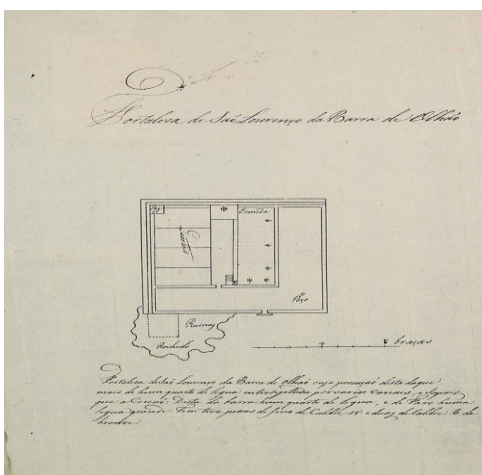 Fortaleza de São Lourenço da Barra de Olhão
Quarteis
Poço
Ruinas
Rochedo
braças
Fortaleza de São Lourenço da Barra de Olhão cuja povoação dista daqui
mais de hum quarto de legua
que a Cercaõ. Dista da barra hum quarto de legua, e de Faro huma
legua grande. Tem tres peças de ferro de Calibre 18 e duas de Calibre 6 de
bronze.